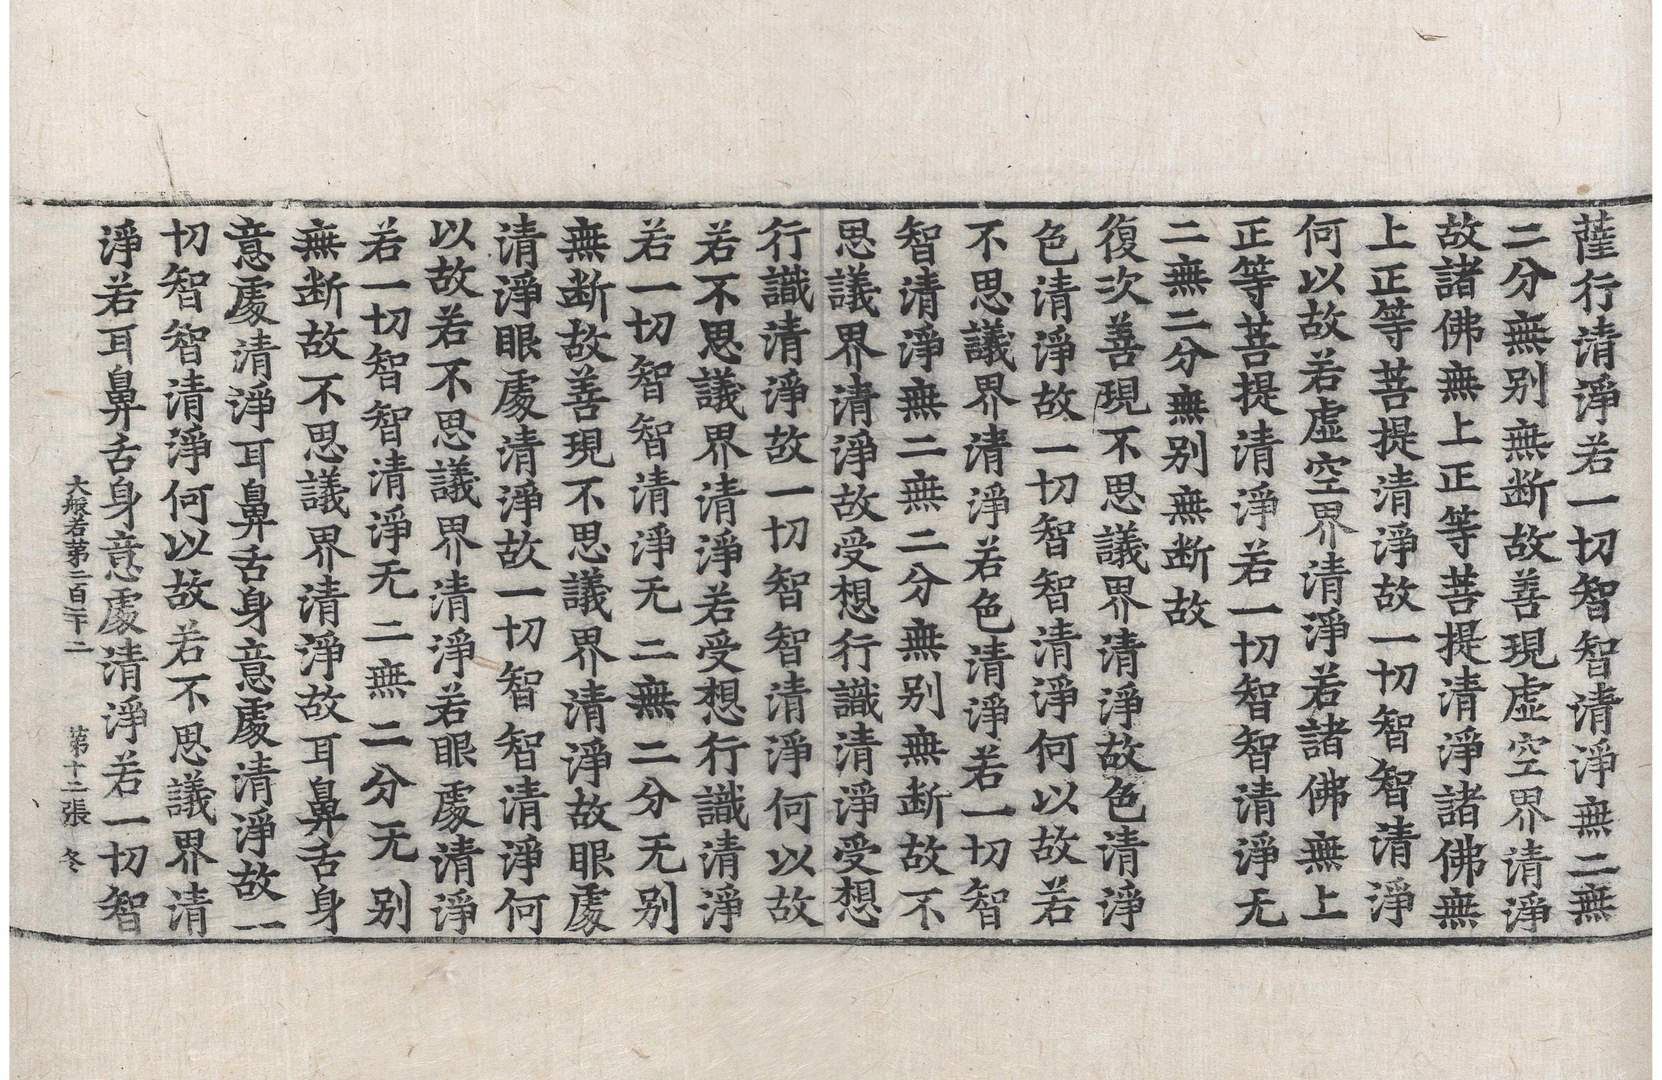 薩行清淨若一切智智清淨無二無
二分無别無断故善現虛空界清淨
故諸佛無上正等菩提清淨諸佛無
上正等菩提清淨故一切智智清淨
何以故若虛空界清淨若諸佛無上
正等菩提清淨若一切智智清淨无
二無二分無别無断故
復次善現不思議界清淨故色清淨
色清淨故一切智智清淨何以故若
不思議界清淨若色清淨若一切智
智清淨無二無二分無别無断故不
思議界清淨故受想行識清淨受想
行識清淨故一切智智清淨何以故
若不思議界清淨若受想行識清淨
若一切智智清淨无二無二分无别
無断故善現不思議界清淨故眼處
清淨眼處清淨故一切智智清淨何
以故若不思議界清淨若眼處清淨
若一切智智清淨无二無二分无别
無断故不思議界清淨故耳鼻舌身
意處清淨耳鼻舌身意處清淨故一
切智智清淨何以故若不思議界清
淨若耳鼻舌身意處清淨若一切智
大般若第二百二十二　第十二張　冬